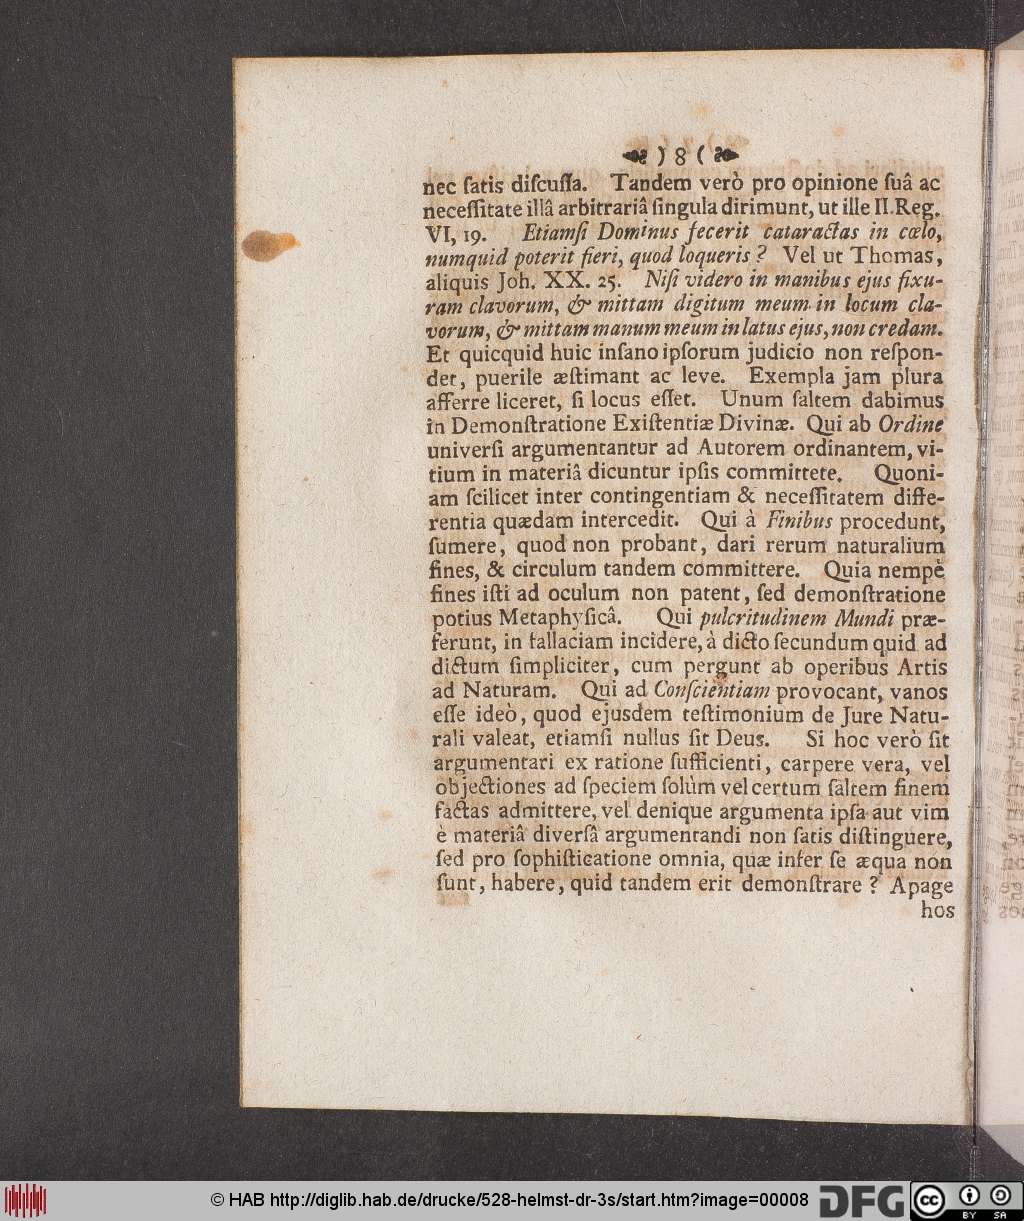 ) 8 (
nec ſatis diſcuſſa. Tandem verò pro opinione ſuâ ac
neceſſitate illâ arbitrariâ ſingula dirimunt, ut ille II. Reg.
VI, 19. Etiamſi Dominus fecerit cataractas in cœlo,
numquid poterit fieri, quod loqueris ? Vel ut Thomas,
aliquis Joh. XX. 25. Niſi videro in manibus ejus fixu-
ram clavorum, & mittam digitum meum in locum cla-
vorum, & mittam manum meum in latus ejus, non credam.
Et quicquid huic inſano ipſorum judicio non reſpon-
det, puerile æſtimant ac leve. Exempla jam plura
afferre liceret, ſi locus eſſet. Unum ſaltem dabimus
in Demonſtratione Exiſtentiæ Divinæ. Qui ab Ordine
univerſi argumentantur ad Autorem ordinantem, vi-
tium in materiâ dicuntur ipſis committete. Quoni-
am ſcilicet inter contingentiam & neceſſitatem diffe-
rentia quædam intercedit. Qui à Finibus procedunt,
ſumere, quod non probant, dari rerum naturalium
fines, & circulum tandem committere. Quia nempè
fines iſti ad oculum non patent, ſed demonſtratione
potius Metaphyſicâ. Qui pulcritudinem Mundi præ-
ferunt, in fallaciam incidere, à dicto ſecundum quid ad
dictum ſimpliciter, cum pergunt ab operibus Artis
ad Naturam. Qui ad Conſcientiam provocant, vanos
eſſe ideò, quod ejusdem teſtimonium de Jure Natu-
rali valeat, etiamſi nullus ſit Deus. Si hoc verò ſit
argumentari ex ratione ſufficienti, carpere vera, vel
objectiones ad ſpeciem ſolùm vel certum ſaltem finem
factas admittere, vel denique argumenta ipſa aut vim
è materiâ diverſâ argumentandi non ſatis diſtinguere,
ſed pro ſophiſticatione omnia, quæ inter ſe æqua non
ſunt, habere, quid tandem erit demonſtrare ? Apage
hos
© HAB http://diglib.hab.de/drucke/528-helmst-dr-3s/start.htm?image=00008
DFG
cc BY SA